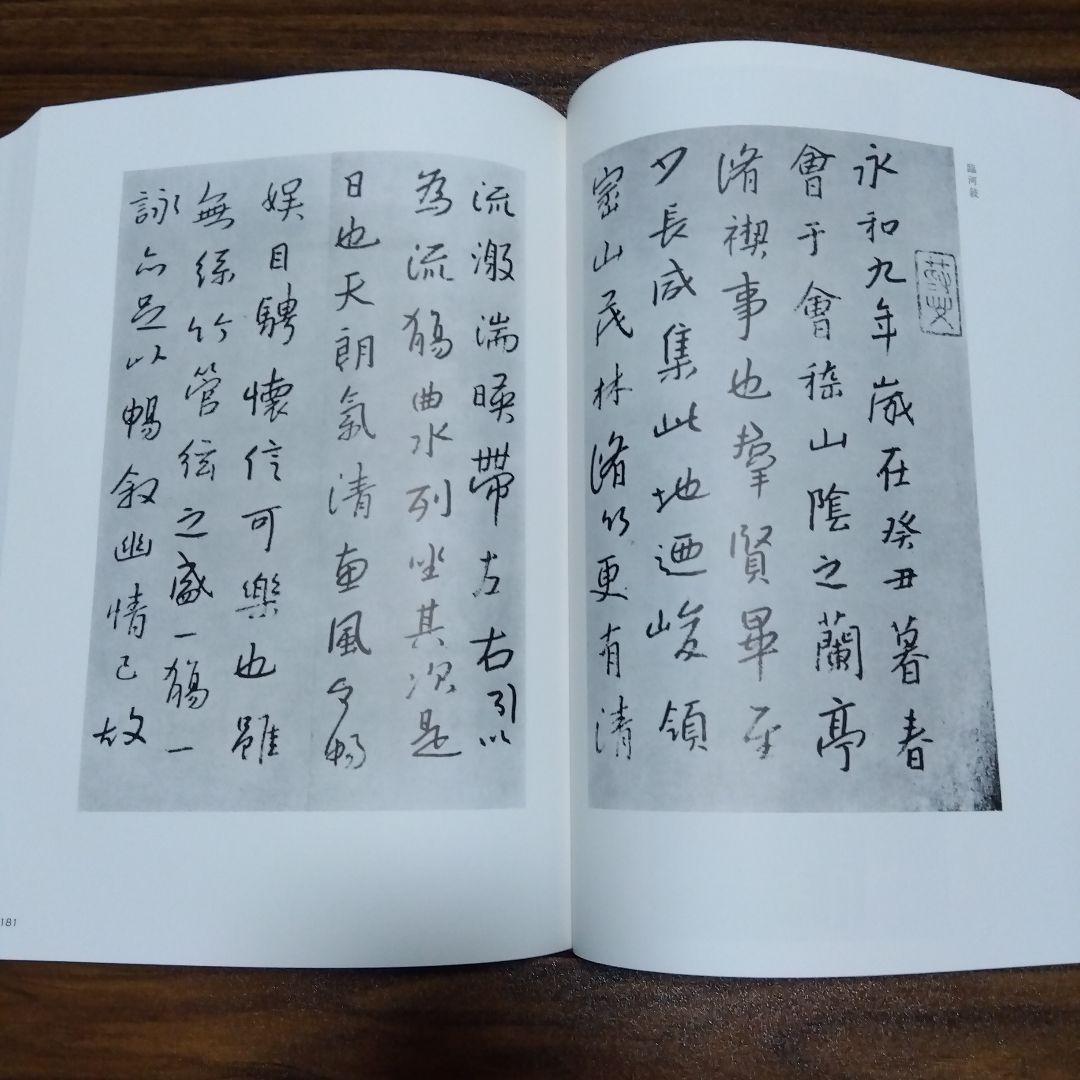 臨河敍
永和九年歲在癸丑暮春
會于會稽山陰之蘭亭
脩禊事也羣賢畢至
少長咸集此地迺峻領
崇山茂林脩竹更有清
流激湍暎帶左右引以
為流觴曲水列坐其次是
日也天朗氣清惠風和暢
娛目騁懷信可樂也雖
無絲竹管絃之盛一觴一
詠亦足以暢敘幽情已故
181